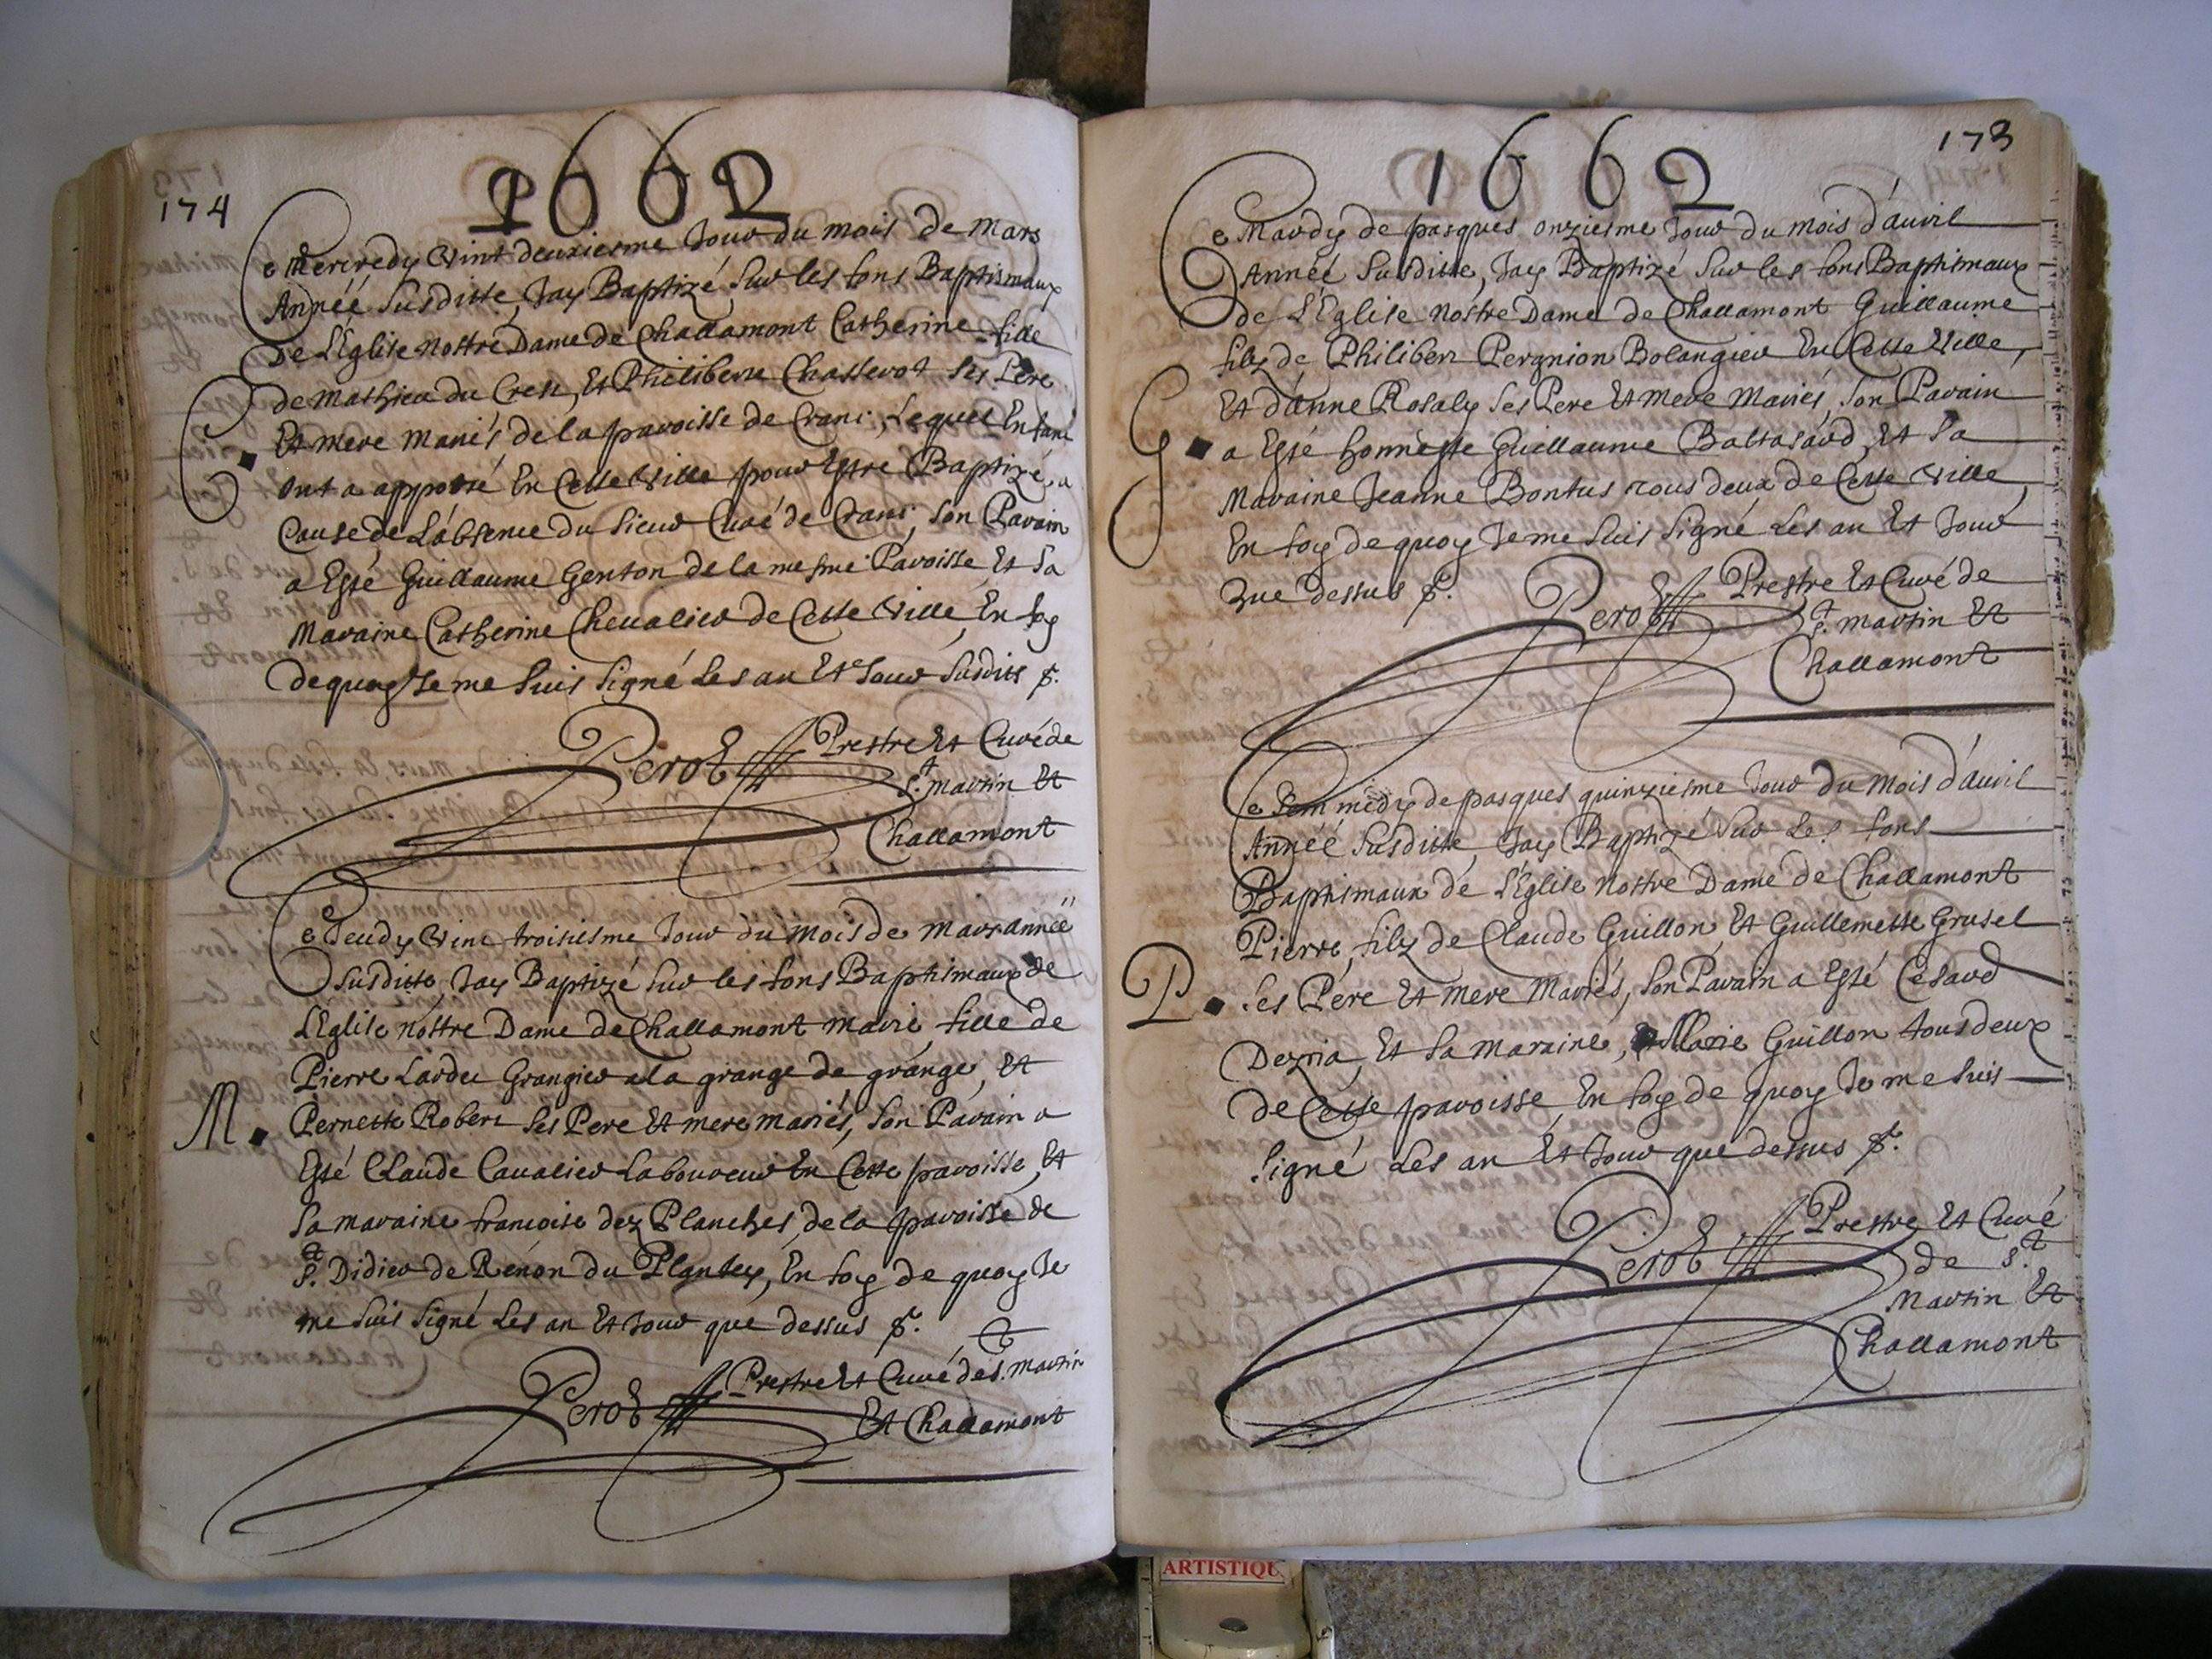 1662
174
Ce Mercredy Vint deuxiesme Jour du mois de Mars
Année susditte, Jay Baptizé sur les fons Baptismaux
de L'Eglise nostre Dame de Challamont Catherine fille
de Mathieu du Crest, Et Philiberte Chasserot ses Pere
Et mere mariés de la paroisse de Crans, Lequel Enfant
ont a apporté En Cette Ville pour Estre Baptizé, a
Cause de L'absence du sieur Curé de Crans, son Parain
C.
a Esté Guillaume Genton de la mesme Paroisse Et sa
Maraine Catherine Chevalier de Cette Ville, En foy
de quoy Je me suis signé Les an Et Jour susdits
Perot Prestre Et Curé de
St. martin Et
Challamont
Ce Jeudy Vint troisiesme Jour du mois de Mars année
susditte, Jay Baptizé sur les fons Baptismaux de
L'Eglise nostre Dame de Challamont marie, fille de
Pierre Lardet Grangier a la grange de grange, Et
M.
Pernette Robert ses Pere Et mere mariés, son Parain a
Esté Claude Cavalier Laboureur En Cette paroisse, Et
sa maraine francoise dez Planches, de la paroisse de
St. Didier de Renon du Plantey, En foy de quoy Je
me suis signé Les an Et Jour que dessus
Perot Prestre Et Curé de St. martin
Et Challamont
1662
173
Ce Mardy de pasques onziesme Jour du mois d'auril
Année susditte, Jay Baptizé sur les fons Baptismaux
de L'Eglise nostre Dame de Challamont Guillaume
filz de Philibert Pergnion Bolangier En Cette Ville,
Et d'anne Rosaly ses Pere Et mere Mariés, son Parain
G.
a Esté honneste Guillaume Baltasard, Et sa
Maraine Jeanne Bontus tous deux de Cette Ville,
En foy de quoy Je me suis signé Les an Et Jour
que dessus
Perot Prestre Et Curé de
St. martin Et
Challamont
Ce Sammedy de pasques quinziesme Jour du Mois d'auril
Année susditte, Jay Baptizé sur Les fons
Baptismaux de L'Eglise nostre Dame de Challamont
Pierre, filz de Claude Guillon, Et Guillemette Grusel
P.
ses Pere Et mere Mariés, son Parain a Esté Cesard
Dezria, Et sa maraine, Marie Guillon tous deux
de Cette paroisse, En foy de quoy Je me suis
signé Les an Et Jour que dessus
Perot Prestre Et Curé
de St.
Martin Et
Challamont
ARTISTIQU